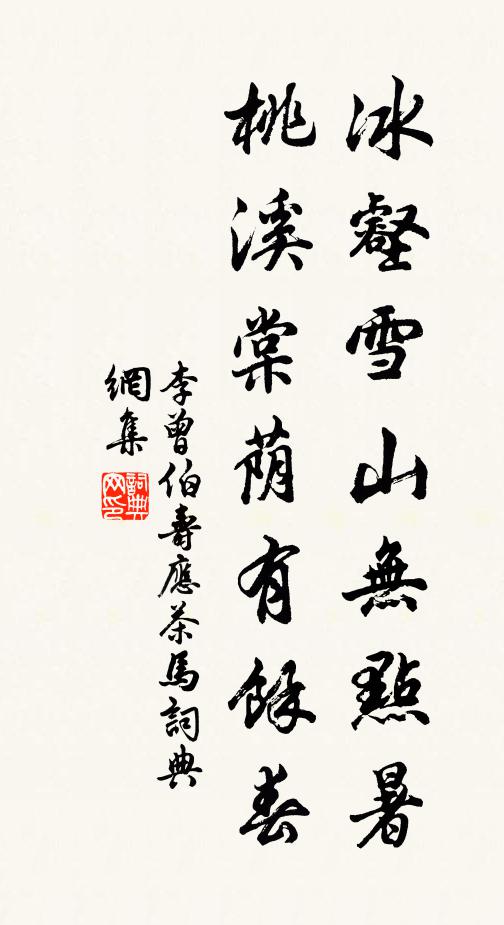 冰壑雪山無點暑
桃溪棠荫有餘春
李曾伯壽應茶馬詞典
網集
詞典
网印